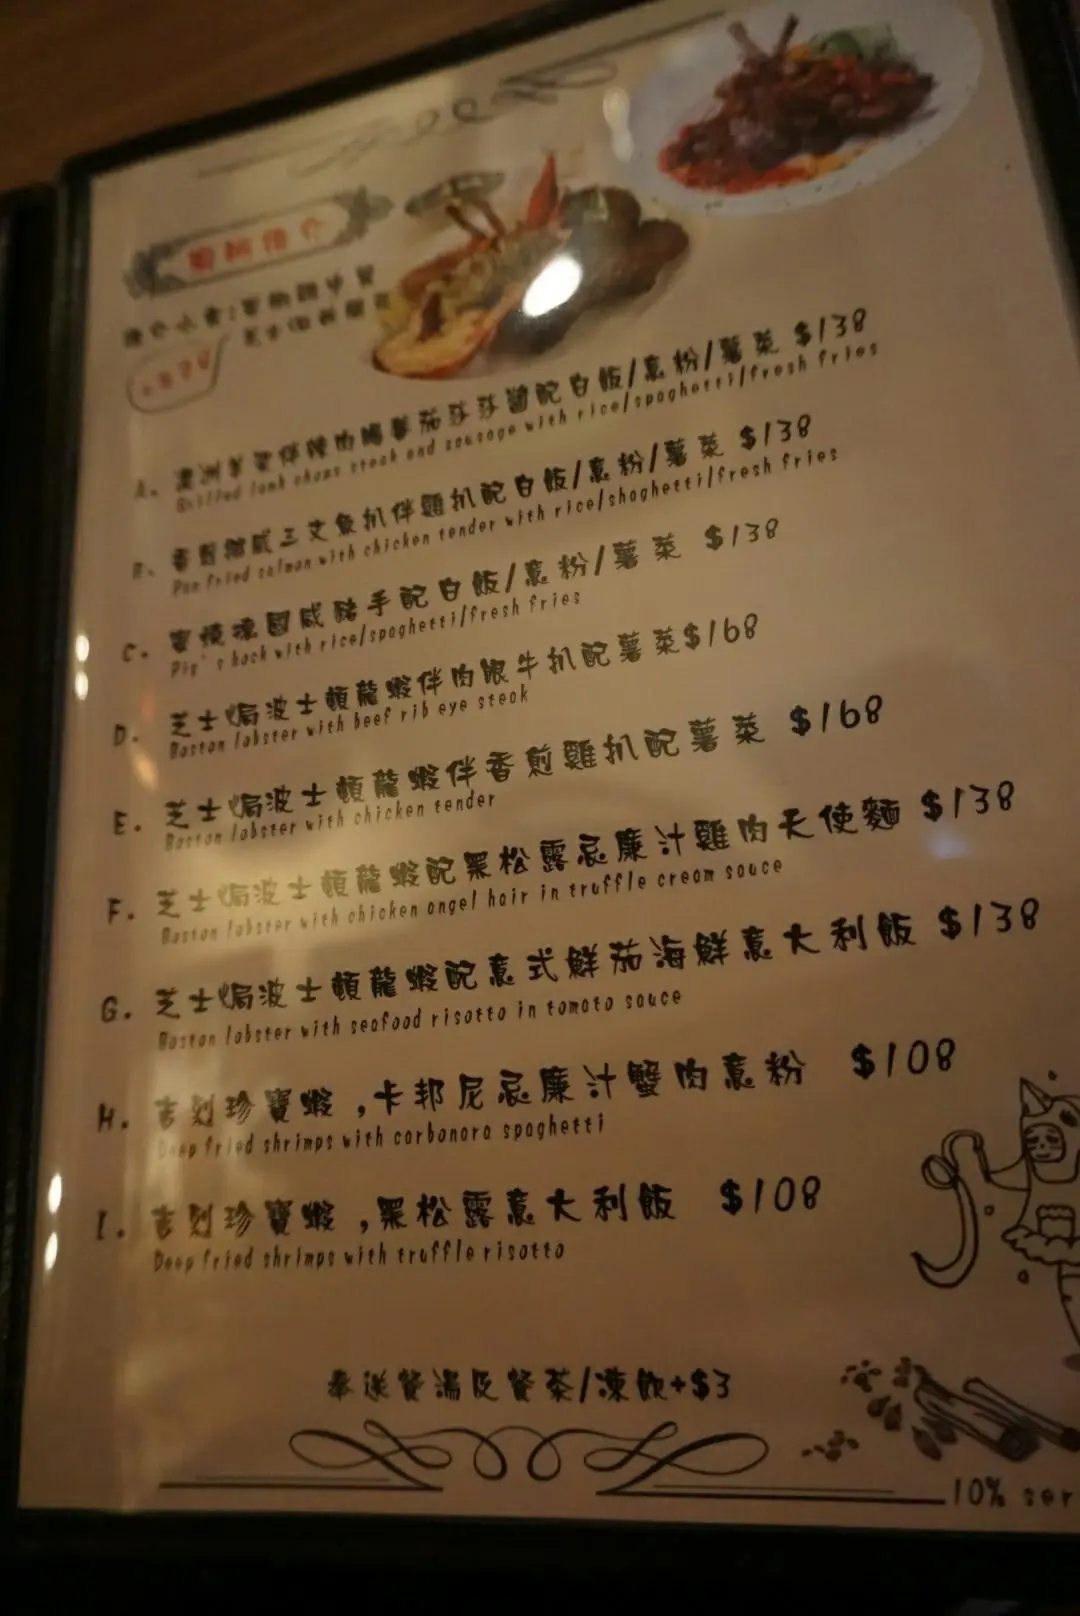 A. 澳洲羊架伴辣肉腸蕃茄莎莎醬配白飯/意粉/薯菜 $138
Grilled lamb chops steak and sausage with rice/spaghetti/fresh fries
B. 香煎挪威三文魚扒伴雞扒配白飯/意粉/薯菜 $138
Pan fried salmon with chicken tender with rice/shaghetti/fresh fries
C. 蜜燒德國咸豬手配白飯/意粉/薯菜 $138
Pig's hock with rice/spaghetti/fresh fries
D. 芝士焗波士頓龍蝦伴肉眼牛扒配薯菜$168
Boston lobster with beef rib eye steak
E. 芝士焗波士頓龍蝦伴香煎雞扒配薯菜 $168
Boston lobster with chicken tender
F. 芝士焗波士頓龍蝦配黑松露忌廉汁雞肉天使麵 $138
Boston lobster with chicken angel hair in truffle cream sauce
G. 芝士焗波士頓龍蝦配意式鮮茄海鮮意大利飯 $138
Boston lobster with seafood risotto in tomato sauce
H. 吉列珍寶蝦,卡邦尼忌廉汁蟹肉意粉 $108
Deep fried shrimps with carbonara spaghetti
I. 吉列珍寶蝦,黑松露意大利飯 $108
Deep fried shrimps with truffle risotto
奉送餐湯及餐茶/凍飲+$3
10%